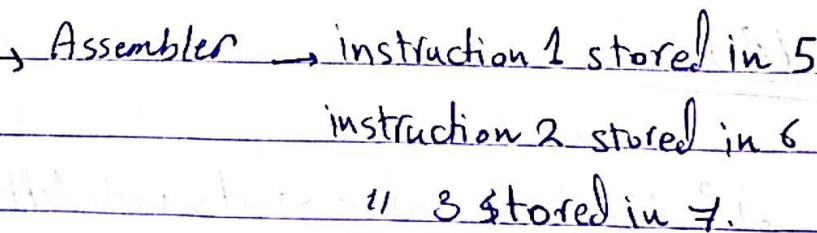 → Assembler → instruction 1 stored in 5
instruction 2 stored in 6
" 3 stored in 7.